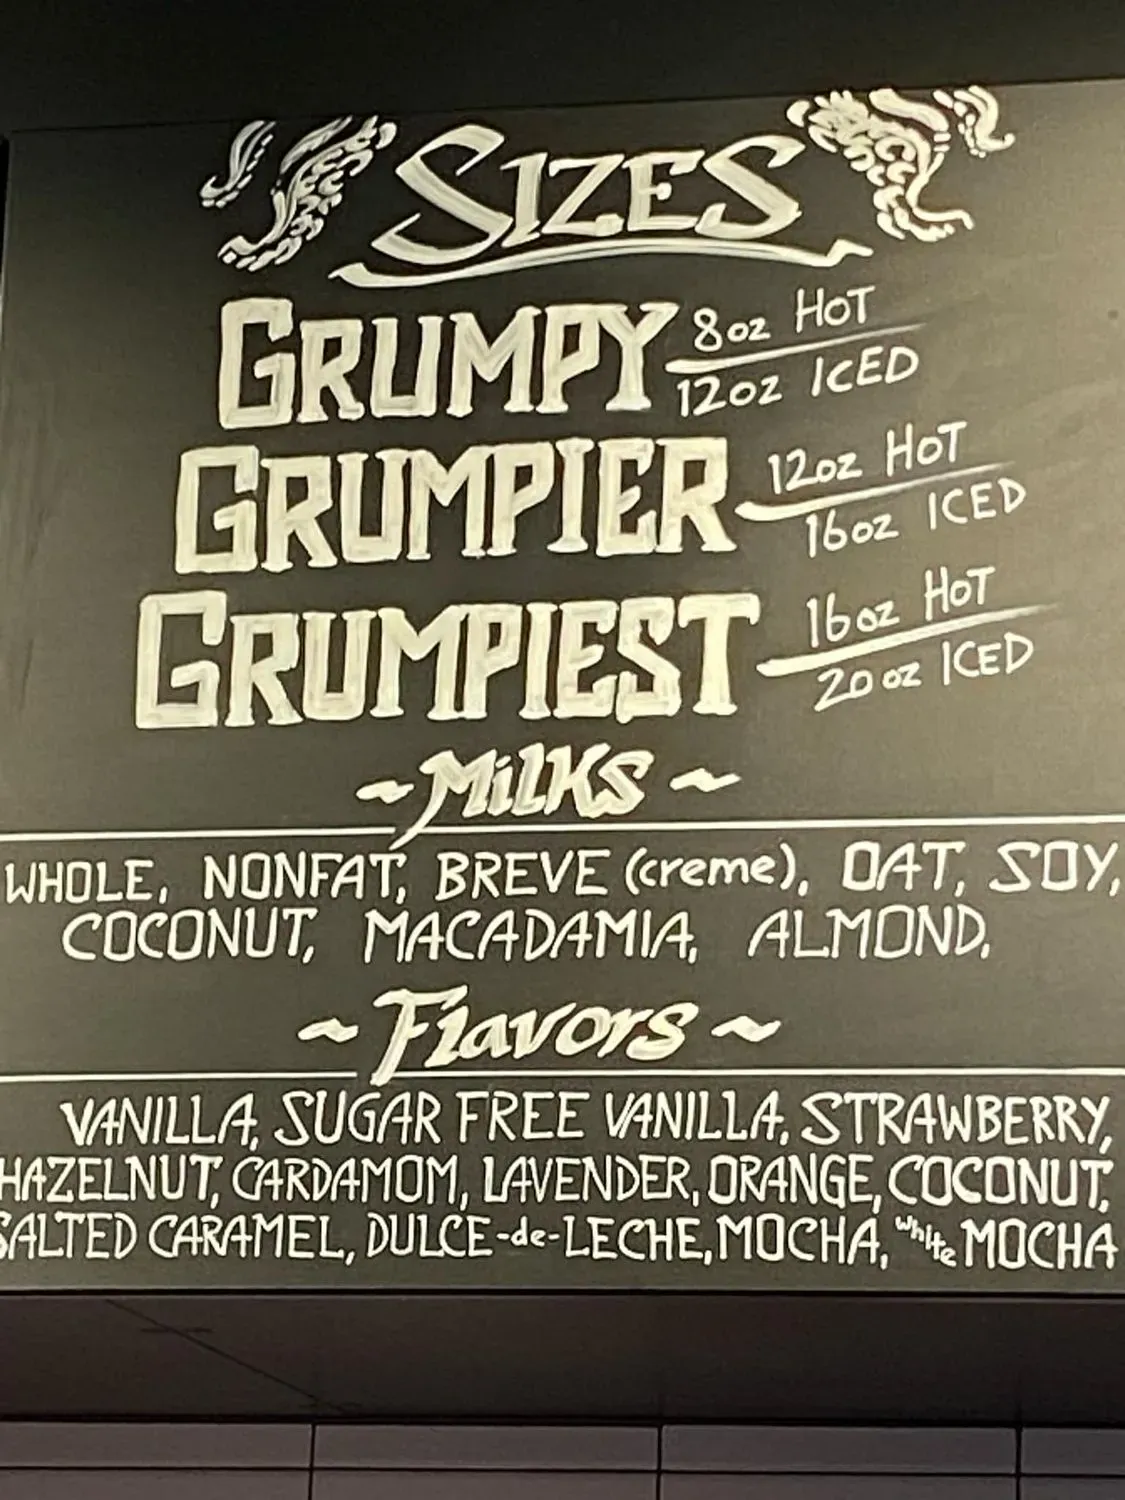 SIZES
GRUMPY 8oz HOT
12oz ICED
GRUMPIER 12oz HOT
16oz ICED
GRUMPIEST 16oz HOT
20oz ICED
~Milks~
WHOLE, NONFAT, BREVE (creme), OAT, SOY,
COCONUT, MACADAMIA, ALMOND,
~Flavors~
VANILLA, SUGAR FREE VANILLA, STRAWBERRY,
HAZELNUT, CARDAMOM, LAVENDER, ORANGE, COCONUT,
SALTED CARAMEL, DULCE-de-LECHE, MOCHA, white MOCHA